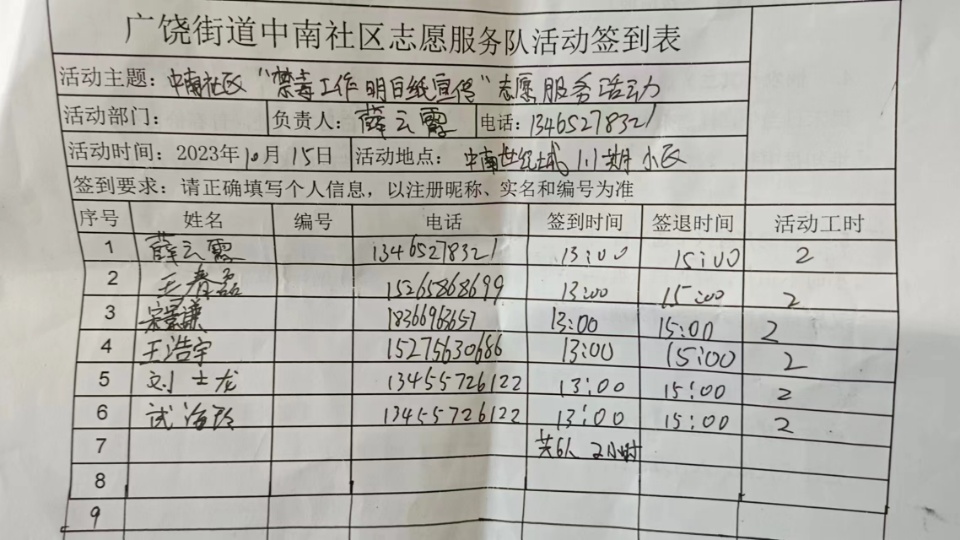 广饶街道中南社区志愿服务队活动签到表
活动主题：中南社区“禁毒工作明白纸宣传”志愿服务活动
活动部门： 负责人：薛云霞 电话：13465278321
活动时间：2023年10月15日 活动地点：中南世纪城 期小区
签到要求：请正确填写个人信息，以注册昵称、实名和编号为准
序号 姓名 编号 电话 签到时间 签退时间 活动工时
1 薛云霞 13465278321 13:00 15:00 2
2 王春磊 15265868699 13:00 15:00 2
3 宋 谦 13:00 15:00 2
4 王浩宇 15275630686 13:00 15:00 2
5 刘士龙 13455726122 13:00 15:00 2
6 13455726122 13:00 15:00 2
7 共6人 2小时
8
9